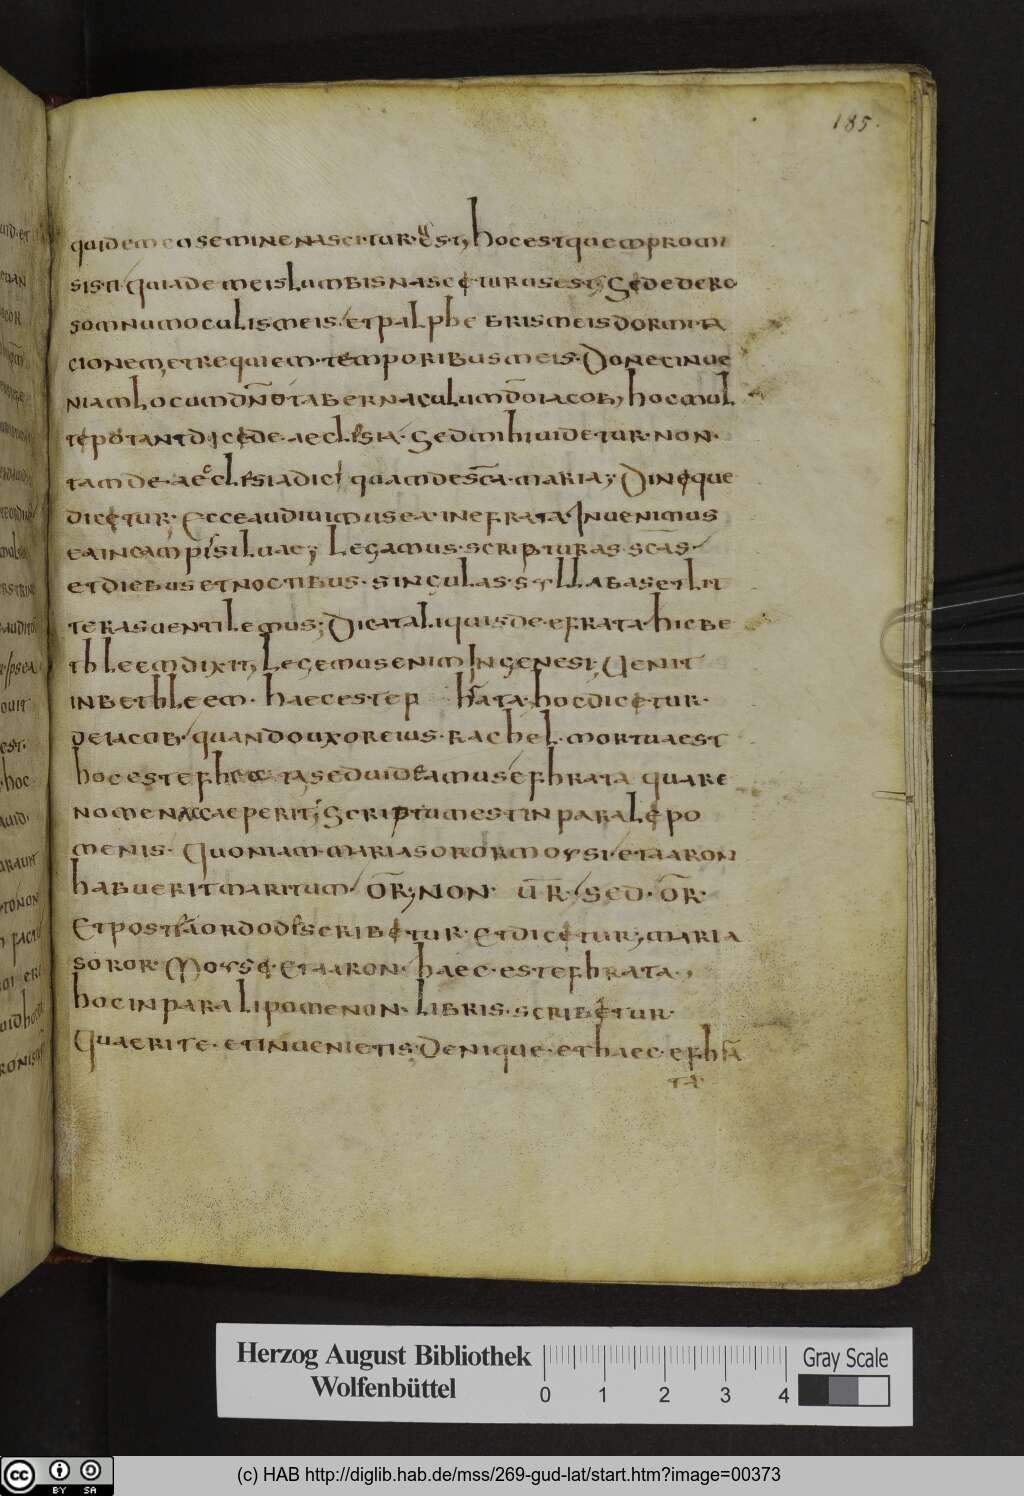 185.
quidemeo semine nascitur est, hoc est quem promi
sisti Quia de meis lumbis nasciturus est; Si dedero
somnum oculis meis. et palphebris meis dormita
cionem, et requiem temporibus meis. Donec inue
niam locum dño tabernaculum dõ iacob, hoc mul
ti potant dici de aeclesia. Sed mihi uidetur non
tam de aeclesia dici quam de scā maria; Denique
dicitur Ecce audiuimus ea in efrata Inuenimus
ea in campi siluae; Legamus scripturas scās.
et diebus et noctibus. singulas syllabas et lit
teras uentilemus; Dicat aliquis de efrata hic be
thleem dixit, Legemus enim In genesi; Uenit
in bethleem. haec est ep hrata. hoc dicitur.
de iacob, quando uxor eius rachel mortua est
hoc est efhrata sed uideamus efhrata quare
nomen acceperit; Scriptum est in paralipo
menis. Quoniam maria soror moysi et aaron
habuerit maritum. or̄; non ur̄. sed or̄.
Et postea ordo describitur et dicitur; maria
soror Moysi et aaron. haec est efhrata.,
hoc in paralipomenon libris scribitur.
Quaerite et inuenietis; Denique et haec efhra
ta.
Herzog August Bibliothek
Wolfenbüttel
0 1 2 3 4
Gray Scale
cc BY SA
(c) HAB http://diglib.hab.de/mss/269-gud-lat/start.htm?image=00373